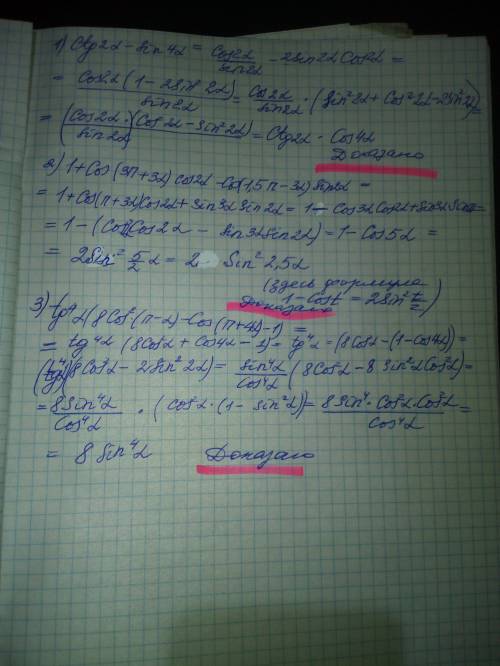 1) Ctg2α - Sin4α = Cos2α/Sin2α - 2Sin2α Cos2α =
= Cos2α (1 - 2Sin² 2α)/Sin2α = Cos2α/Sin2α · (Sin²2α + Cos²2α - 2Sin²2α) =
= (Cos2α · (Cos²2α - Sin²2α)/Sin2α) = Ctg2α · Cos4α
Доказано
2) 1 + Cos(3π+3α) cos2α - Cos(1,5π - 3α) Sin2α =
= 1 + Cos(π+3α)Cos2α + Sin3α Sin2α = 1 - Cos3α Cos2α + Sin3α Sin2α =
= 1 - (Cos3αCos2α - Sin3αSin2α) = 1 - Cos5α =
= 2Sin² 5/2 α = 2 Sin² 2,5α
(здесь формула
1 - Cost = 2Sin² t/2)
Доказано
3) tg⁴α (8Cos²(π-α) - Cos(π+4α) - 1) =
= tg⁴α (8Cos²α + Cos4α - 1) = tg⁴α = (8Cos²α - (1 - Cos4α)) =
(tg⁴α)(8Cos²α - 2Sin²2α) = Sin⁴α/Cos⁴α (8Cos²α - 8Sin²αCos²α) =
= 8Sin⁴α/Cos⁴α · (Cos²α · (1 - Sin²α)) = 8Sin⁴ · Cos²α · Cos²α/Cos⁴α =
= 8 Sin⁴α Доказано